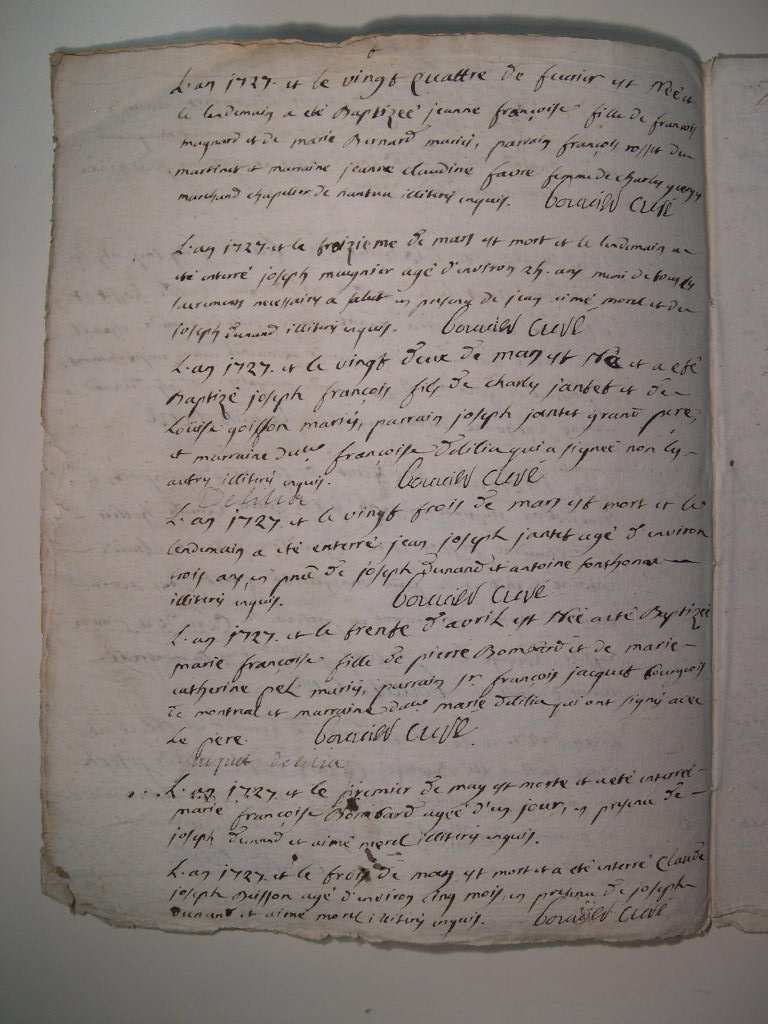 6
L'an 1727. et le vingt quattre de fevrier est née et
le lendemain a eté Baptizeé jeanne françoise fille de françois
magnard et de marie Bernard mariés, parrain françois rosset du
martinet et marraine jeanne claudine favre femme de charles
marchand chapelier de nantua illiterés enquis. Bouciés Curé
L'an 1727. et le troizieme de mars est mort et le lendemain a
eté enterré joseph mugnier agé d'environ 24. ans muni de tous les
sacremens necessaires a salut en presence de jean aimé morel et de
joseph Dunand illiterés enquis. Bouciés Curé
L'an 1727. et le vingt deux de mars est Né et a eté
Baptizé joseph françois fils de charles jantet et de
Loüise goiffon mariés, parrain joseph jantet grand pere,
et marraine françoise delilia qui a signeé non les
autres illiterés enquis. Bouciés Curé
Delilia
L'an 1727. et le vingt trois de mars est mort et le
lendemain a eté enterré jean joseph jantet agé d'environ
trois ans, en pnce de joseph Dunand et antoine sonthonnax
illiterés enquis. Bouciés Curé
L'an 1727. et le trente d'avril est Neé a eté Baptizeé
marie françoise fille de pierre Bombard et de marie
catherine pel mariés, parrain sr. françois jacquet bourgeois
de montreal et marraine marie delilia qui ont signés avec
Le pere. Bouciés Curé
jacquet delilia
L'an 1727. et le premier de may est morte et a eté enterreé
marie françoise Bombard ageé d'un jour, en presence de
joseph Dunand et aimé morel illiterés enquis.
L'an 1727. et le trois de may est mort et a eté enterré Claude
joseph Buisson agé d'environ cinq mois, en presence de joseph
Dunand et aimé morel illiterés enquis. Bouciés Curé